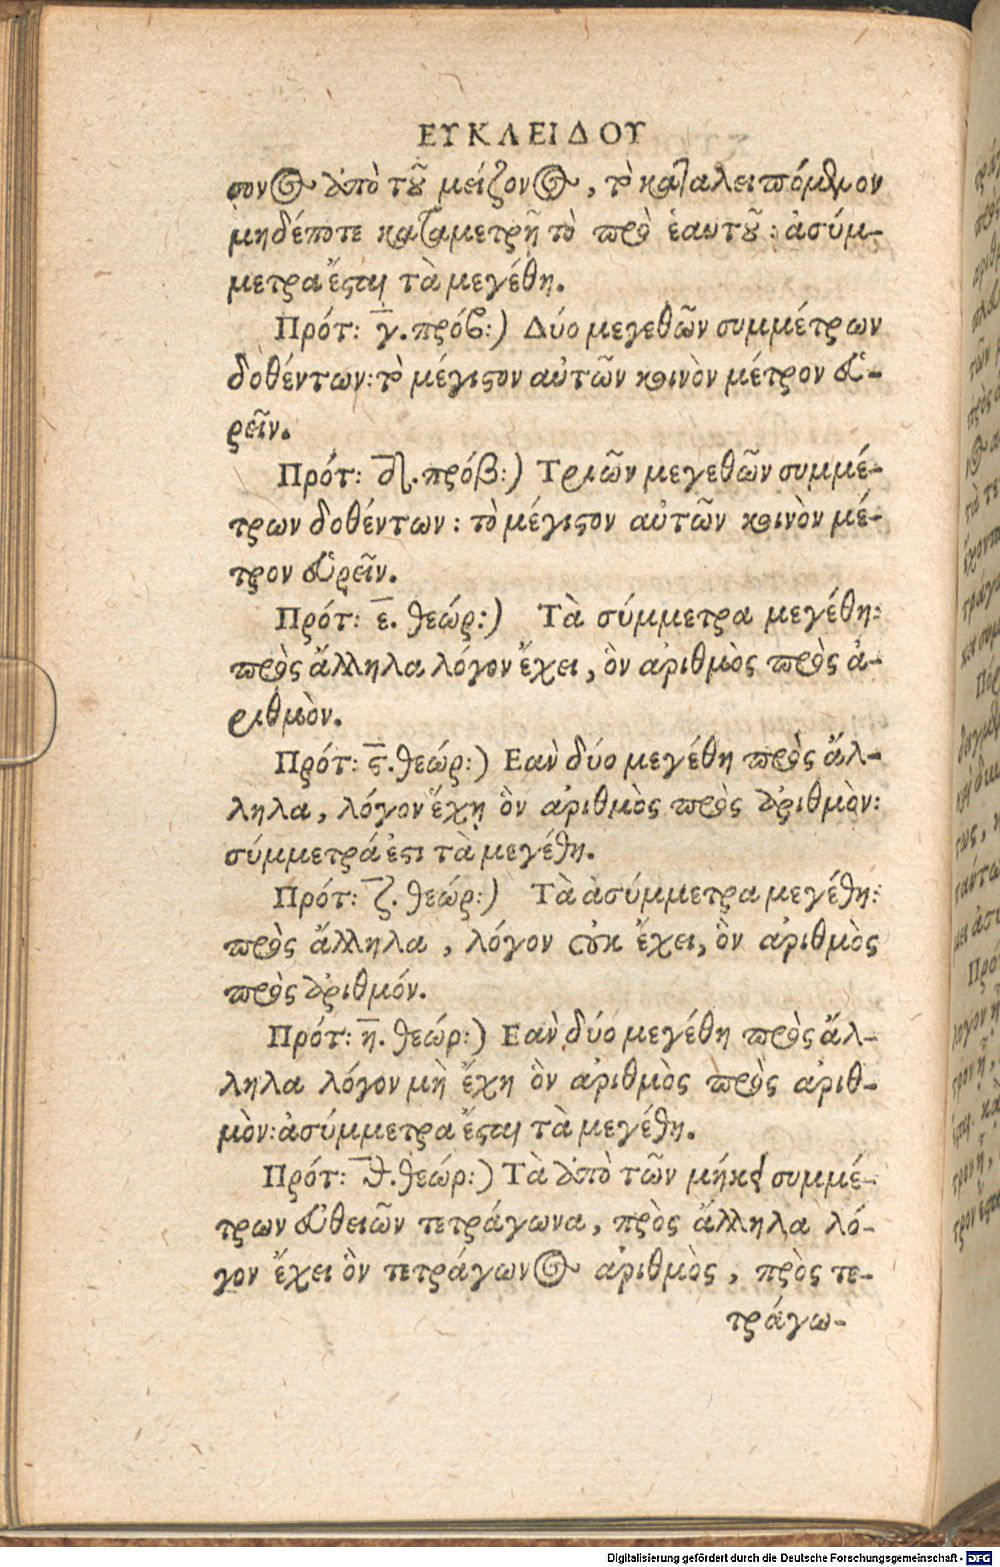 ΕΥΚΛΕΙΔΟΥ
σονος ἀπὸ τοῦ μείζονος, τὸ καταλειπόμενον
μηδέποτε καταμετρῇ τὸ πρὸ ἑαυτοῦ: ἀσύμ-
μετρα ἔσται τὰ μεγέθη.
Πρότ: γ. πρόβ:) Δύο μεγεθῶν συμμέτρων
δοθέντων: τὸ μέγιστον αὐτῶν κοινὸν μέτρον εὑ-
ρεῖν.
Πρότ: δ. πρόβ:) Τριῶν μεγεθῶν συμμέ-
τρων δοθέντων: τὸ μέγιστον αὐτῶν κοινὸν μέ-
τρον εὑρεῖν.
Πρότ: ε. θεώρ:) Τὰ σύμμετρα μεγέθη:
πρὸς ἄλληλα λόγον ἔχει, ὃν ἀριθμὸς πρὸς ἀ-
ριθμὸν.
Πρότ: ϛ. θεώρ:) Εαν δύο μεγέθη πρὸς ἄλ-
ληλα, λόγον ἔχῃ ὃν ἀριθμὸς πρὸς ἀριθμὸν:
σύμμετρά ἐστι τὰ μεγέθη.
Πρότ: ζ. θεώρ:) Τὰ ἀσύμμετρα μεγέθη:
πρὸς ἄλληλα, λόγον οὐκ ἔχει, ὃν ἀριθμὸς
πρὸς ἀριθμόν.
Πρότ: η. θεώρ:) Εαν δύο μεγέθη πρὸς ἄλ-
ληλα λόγον μὴ ἔχη ὃν ἀριθμὸς πρὸς ἀριθ-
μὸν: ἀσύμμετρα ἔσται τὰ μεγέθη.
Πρότ: θ. θεώρ:) Τὰ ἀπὸ τῶν μήκει συμμέ-
τρων εὐθειῶν τετράγωνα, πρὸς ἄλληλα λό-
γον ἔχει ὃν τετράγωνος ἀριθμὸς, πρὸς τε-
τράγω-
Digitalisierung gefördert durch die Deutsche Forschungsgemeinschaft - DFG